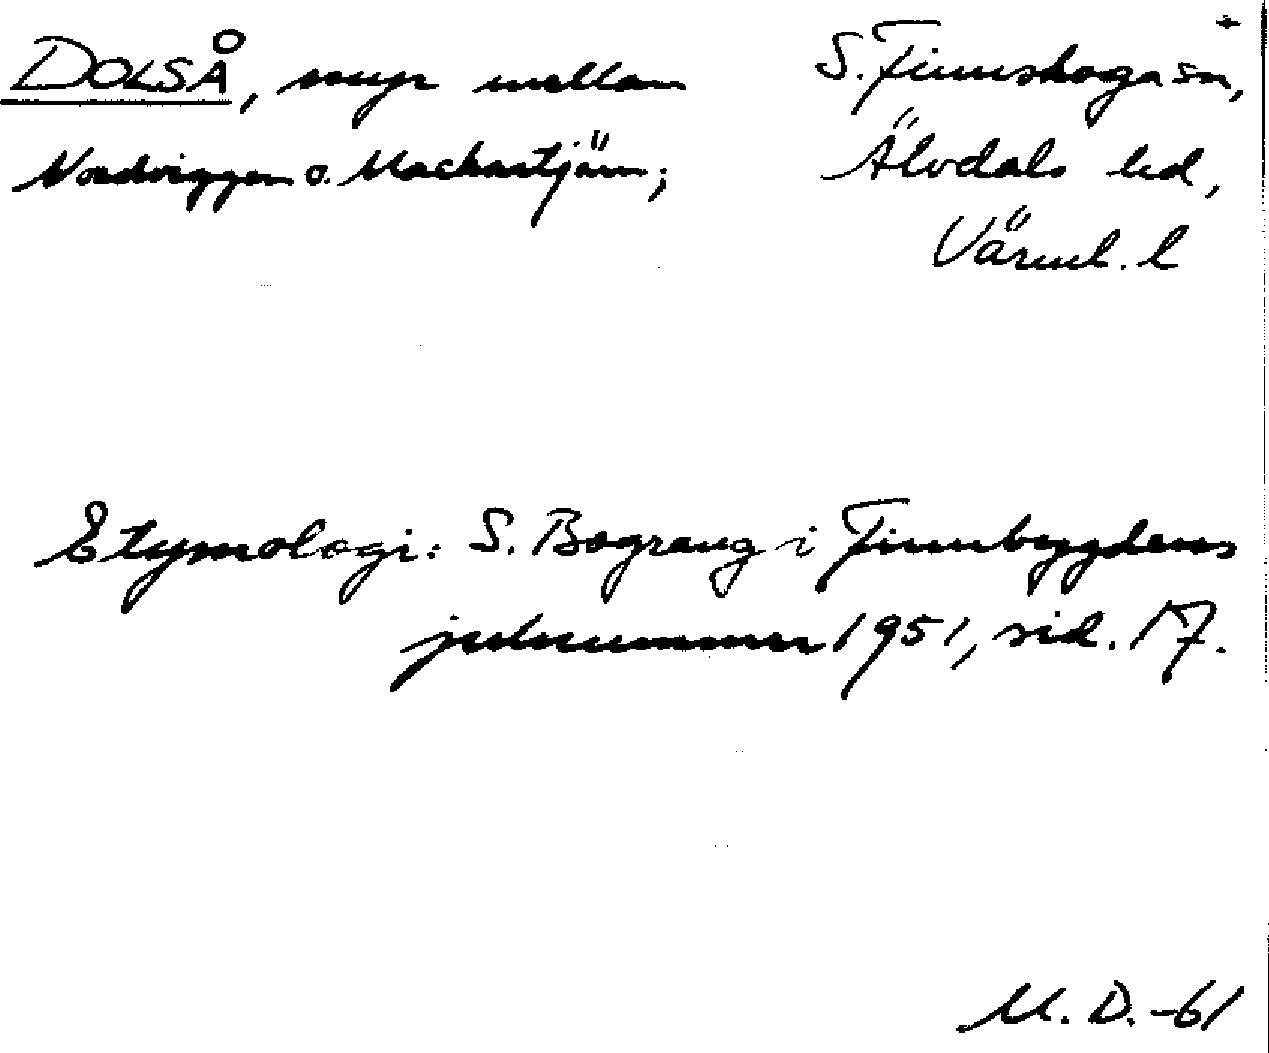 DOLSÅ, myr mellan
Nordviggen o. Mackartjärn;
S. Finnskoga sn,
Älvdals hd,
Värml. l
Etymologi: S. Bograng i Finnbygdens
julnummer 1951, sid. 17.
M. D. -61